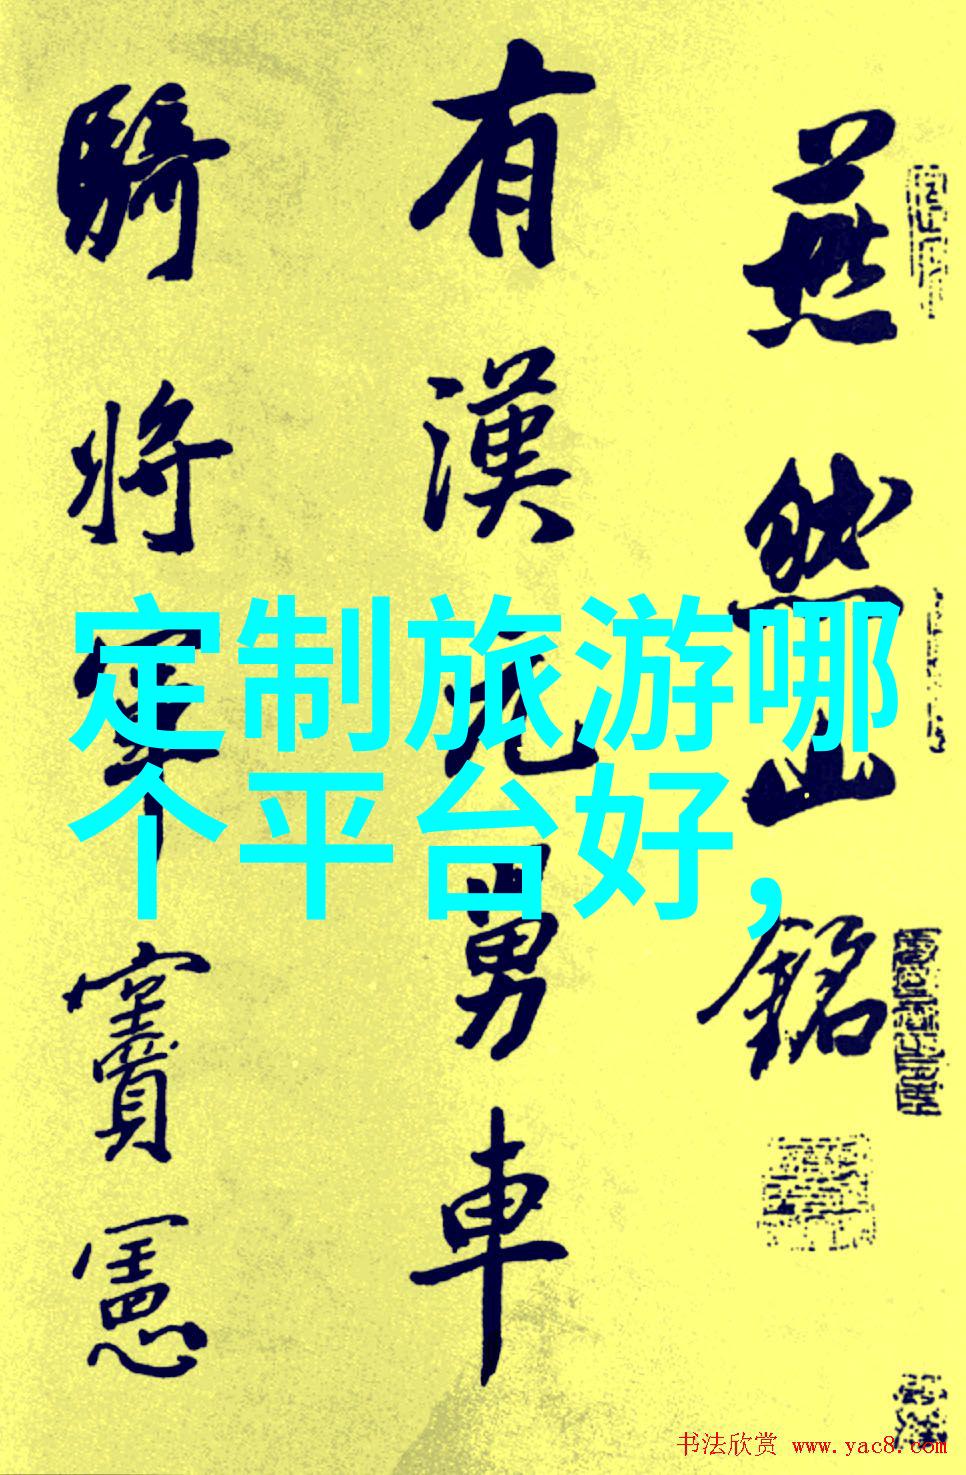 燕然山銘
有漢元舅車
騎將軍竇憲
定制旅游哪
个平台好，
书法欣赏 www.yac8.com